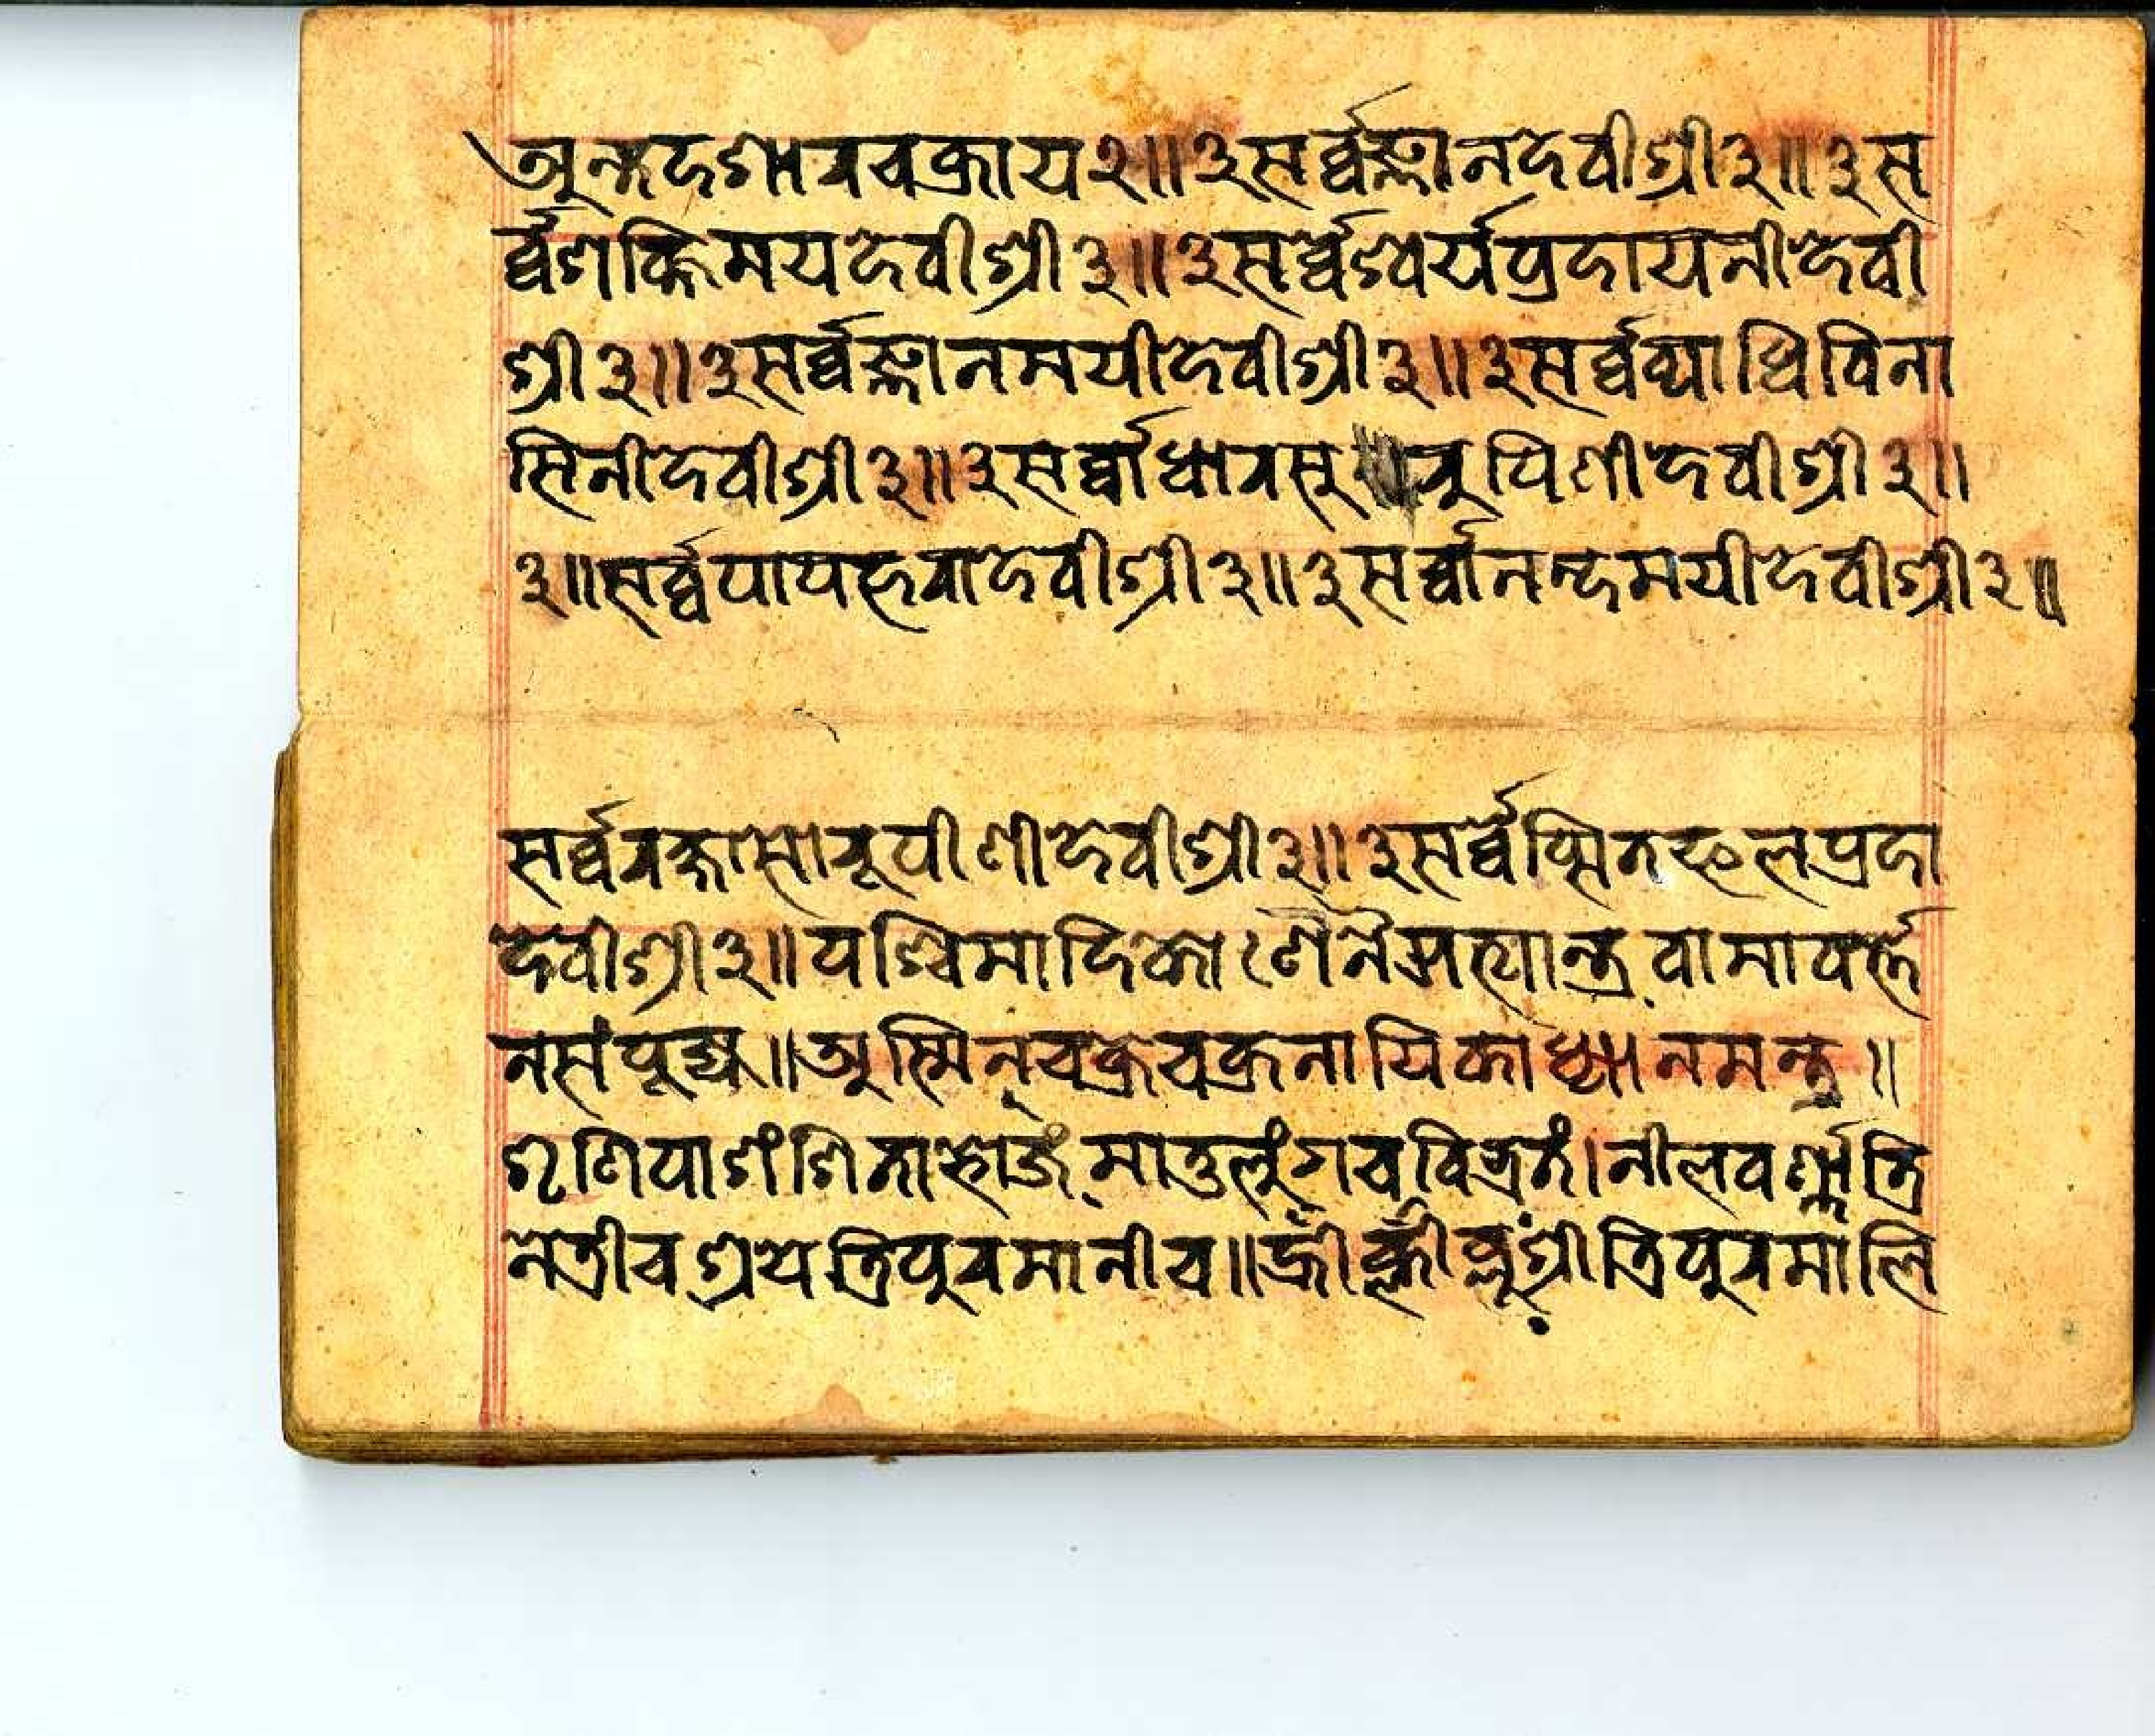 अन्तदशारचक्राय२॥३सर्व्वज्ञानदेवीश्री३॥३स
र्व्वशक्तिमयदेवीश्री३॥३सर्व्वेश्वर्यप्रदायनीदेवी
श्री३॥३सर्व्वज्ञानमयीदेवीश्री३॥३सर्व्वव्याधिविना
सिनीदेवीश्री३॥३सर्व्वाधारसुरुपिणीदेवीश्री३॥
३॥सर्व्वपापहरादेवीश्री३॥३सर्व्वानन्दमयीदेवीश्री३॥
सर्व्वरक्षासोरूपीणीदेवीश्री३॥३सर्व्वेप्सितफलप्रदा
देवीश्री३॥पश्चिमादिकोणेनैऋत्यान्त्रवामावर्त्ते
नसंपूज्य॥अस्मिन्चक्रेचक्रनायिकाध्यानमन्त्र॥
शृणिपाशंशिताम्भोजं मातुलुंगचविभ्रतं।नीलवर्ण्णात्रि
नेत्रीचश्रयेत्रिपुरमानीच॥ह्रीँक्लीँब्लूंश्रीत्रिपुरमालि